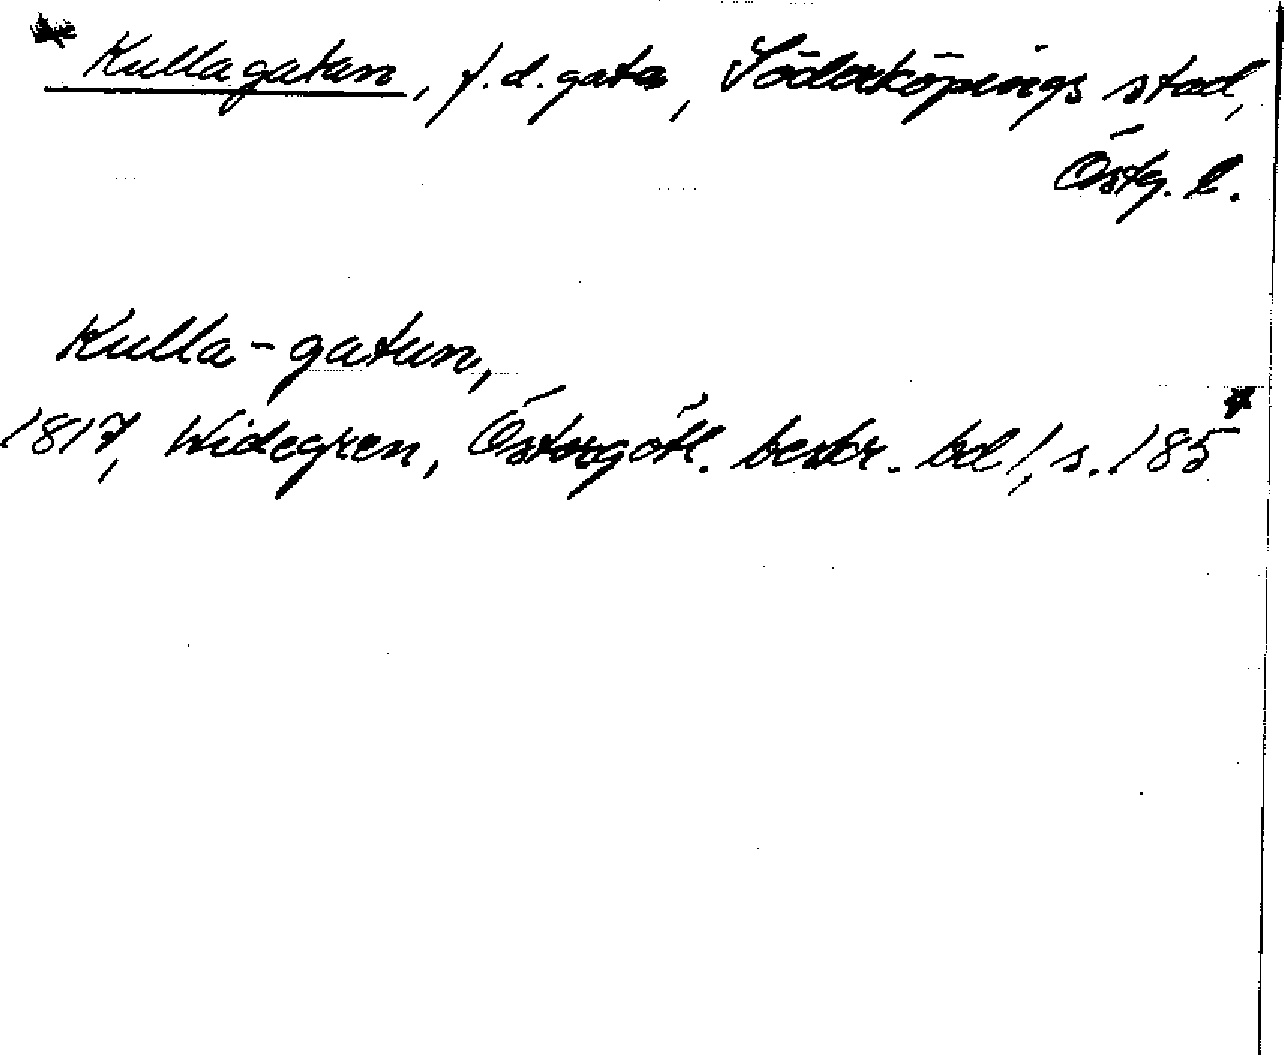 * Kullagatan, f.d. gata, Söderköpings stad,
Östg. l.
Kulla-gatan,
1817, Widegren, Östergötl. beskr. bd 1, s. 185